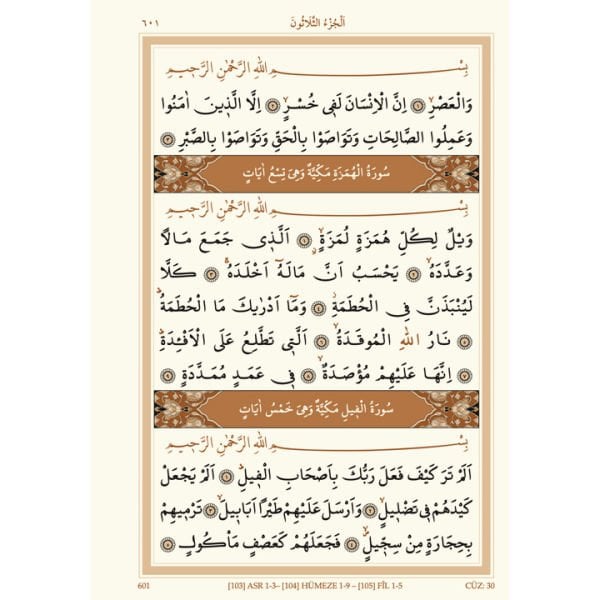 اَلْجُزْءُ الثَّلَاثُونَ ٦٠١
بِسْمِ اللّٰهِ الرَّحْمٰنِ الرَّح۪يمِ
وَالْعَصْرِۙ ﴿١﴾ اِنَّ الْاِنْسَانَ لَف۪ي خُسْرٍۙ ﴿٢﴾ اِلَّا الَّذ۪ينَ اٰمَنُوا
وَعَمِلُوا الصَّالِحَاتِ وَتَوَاصَوْا بِالْحَقِّ وَتَوَاصَوْا بِالصَّبْرِ ﴿٣﴾
سُورَةُ الْهُمَزَةِ مَكِّيَّةٌ وَهِيَ تِسْعُ اٰيَاتٍ
بِسْمِ اللّٰهِ الرَّحْمٰنِ الرَّح۪يمِ
وَيْلٌ لِكُلِّ هُمَزَةٍ لُمَزَةٍۙ ﴿١﴾ اَلَّذ۪ي جَمَعَ مَالًا
وَعَدَّدَهُۙ ﴿٢﴾ يَحْسَبُ اَنَّ مَالَهُٓ اَخْلَدَهُۚ ﴿٣﴾ كَلَّا
لَيُنْبَذَنَّ فِي الْحُطَمَةِۘ ﴿٤﴾ وَمَٓا اَدْرٰيكَ مَا الْحُطَمَةُۜ
﴿٥﴾ نَارُ اللّٰهِ الْمُوقَدَةُۙ ﴿٦﴾ اَلَّت۪ي تَطَّلِعُ عَلَى الْاَفْـِٔدَةِۜ
﴿٧﴾ اِنَّهَا عَلَيْهِمْ مُؤْصَدَةٌۙ ﴿٨﴾ ف۪ي عَمَدٍ مُمَدَّدَةٍ ﴿٩﴾
سُورَةُ الْف۪يلِ مَكِّيَّةٌ وَهِيَ خَمْسُ اٰيَاتٍ
بِسْمِ اللّٰهِ الرَّحْمٰنِ الرَّح۪يمِ
اَلَمْ تَرَ كَيْفَ فَعَلَ رَبُّكَ بِاَصْحَابِ الْف۪يلِۜ ﴿١﴾ اَلَمْ يَجْعَلْ
كَيْدَهُمْ ف۪ي تَضْل۪يلٍۙ ﴿٢﴾ وَاَرْسَلَ عَلَيْهِمْ طَيْرًا اَبَاب۪يلَۙ ﴿٣﴾ تَرْم۪يهِمْ
بِحِجَارَةٍ مِنْ سِجّ۪يلٍۙ ﴿٤﴾ فَجَعَلَهُمْ كَعَصْفٍ مَأْكُولٍ ﴿٥﴾
601 [103] ASR 1-3– [104] HÜMEZE 1-9 – [105] FİL 1-5 CÜZ: 30